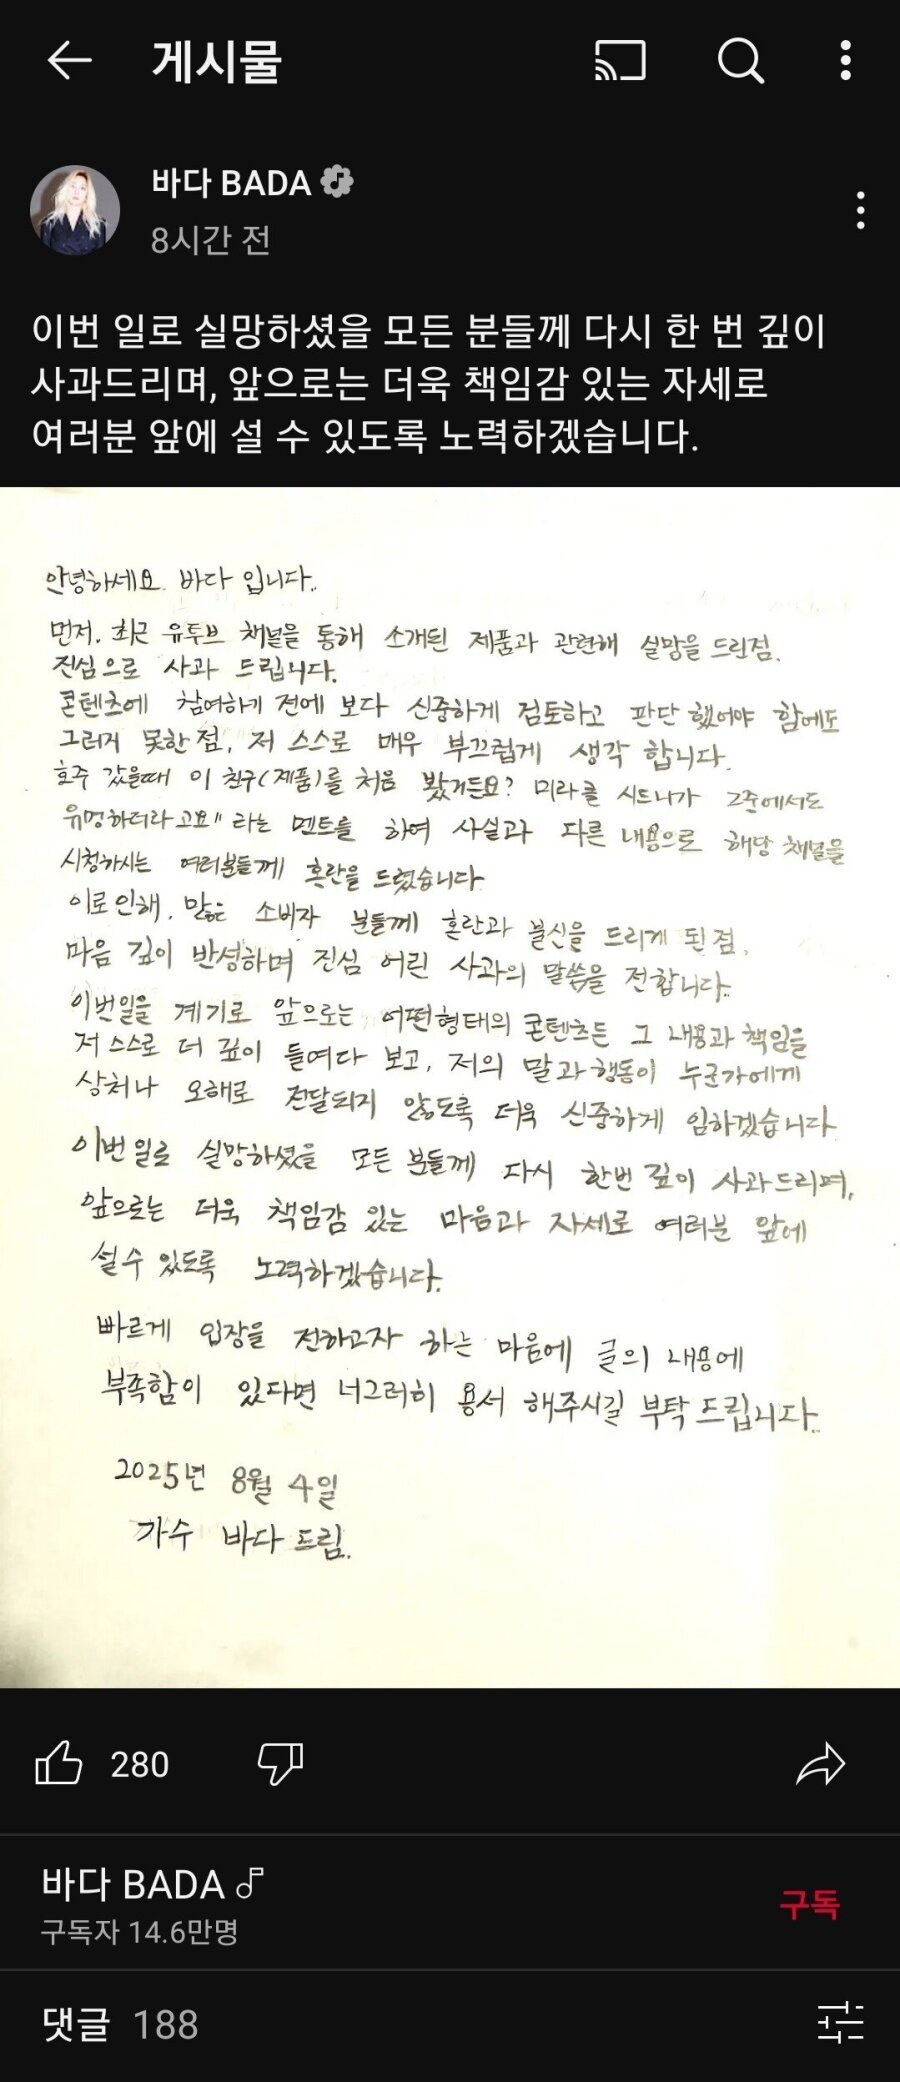 게시물
바다 BADA
8시간 전
이번 일로 실망하셨을 모든 분들께 다시 한 번 깊이
사과드리며, 앞으로는 더욱 책임감 있는 자세로
여러분 앞에 설 수 있도록 노력하겠습니다.
안녕하세요. 바다 입니다.
먼저, 최근 유투브 채널을 통해 소개된 제품과 관련해 실망을 드린점,
진심으로 사과 드립니다.
콘텐츠에 참여하기 전에 보다 신중하게 검토하고 판단 했어야 함에도
그러지 못한 점, 저 스스로 매우 부끄럽게 생각 합니다.
호주 갔을때 이 친구(제품)를 처음 봤거든요? 미라클 시드니가 그쪽에서도
유명하더라고요" 라는 멘트를 하여 사실과 다른 내용으로 해당 채널을
시청하시는 여러분들께 혼란을 드렸습니다.
이로인해, 많은 소비자 분들께 혼란과 불신을 드리게 된점,
마음 깊이 반성하며 진심 어린 사과의 말씀을 전합니다.
이번일을 계기로 앞으로는 어떤형태의 콘텐츠든 그 내용과 책임을
저 스스로 더 깊이 들여다 보고, 저의 말과 행동이 누군가에게
상처나 오해로 전달되지 않도록 더욱 신중하게 임하겠습니다.
이번 일로 실망하셨을 모든 분들께 다시 한번 깊이 사과드리며,
앞으로는 더욱 책임감 있는 마음과 자세로 여러분 앞에
설수 있도록 노력하겠습니다.
빠르게 입장을 전하고자 하는 마음에 글의 내용에
부족함이 있다면 너그러히 용서 해주시길 부탁 드립니다.
2025년 8월 4일
가수 바다 드림.
280
바다 BADA
구독자 14.6만명
구독
댓글 188